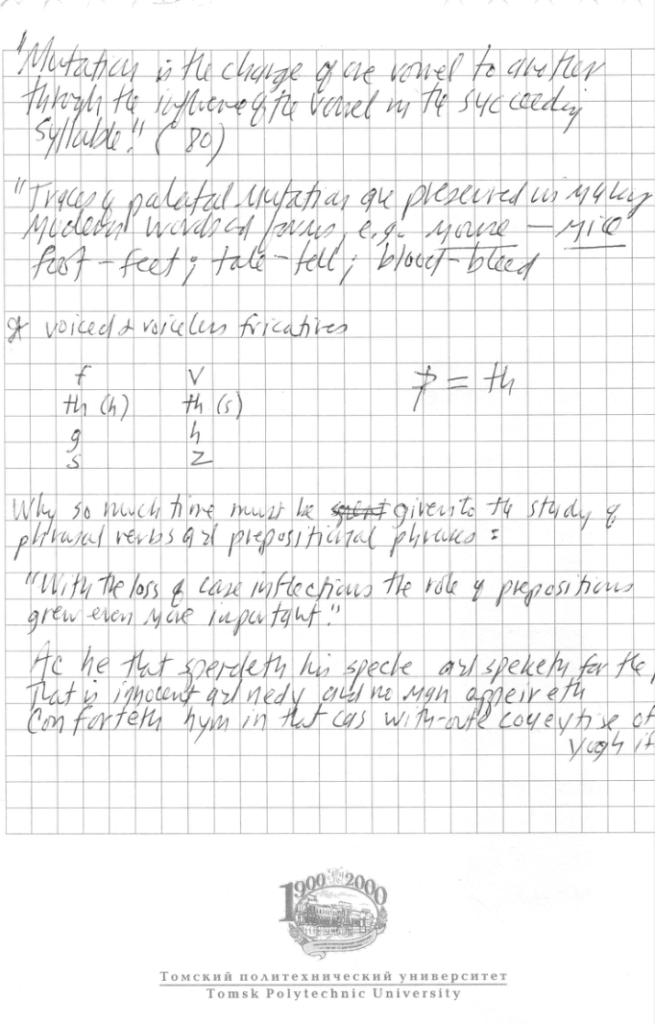 "Mutation is the change of one vowel to another
through the influence of the vowel in the succeeding
syllable." (80)
"Traces of palatal mutation are preserved in many
modern words and forms, e.g. mouse – mice
foot – feet; tale – tell; blood – bleed
voiced & voiceless fricatives
f v
th (h) th (s) þ = th
g h
s z
Why so much time must be given to the study of
phrasal verbs and prepositional phrases:
"With the loss of case inflections the role of prepositions
grew even more important."
Ac he that spendeth his speche and speketh for the
that is innocent and nedy and no man appeireth
Conforteth hym in that cas with-oute coveytise of
yogh if
1900 2000
Томский политехнический университет
Tomsk Polytechnic University